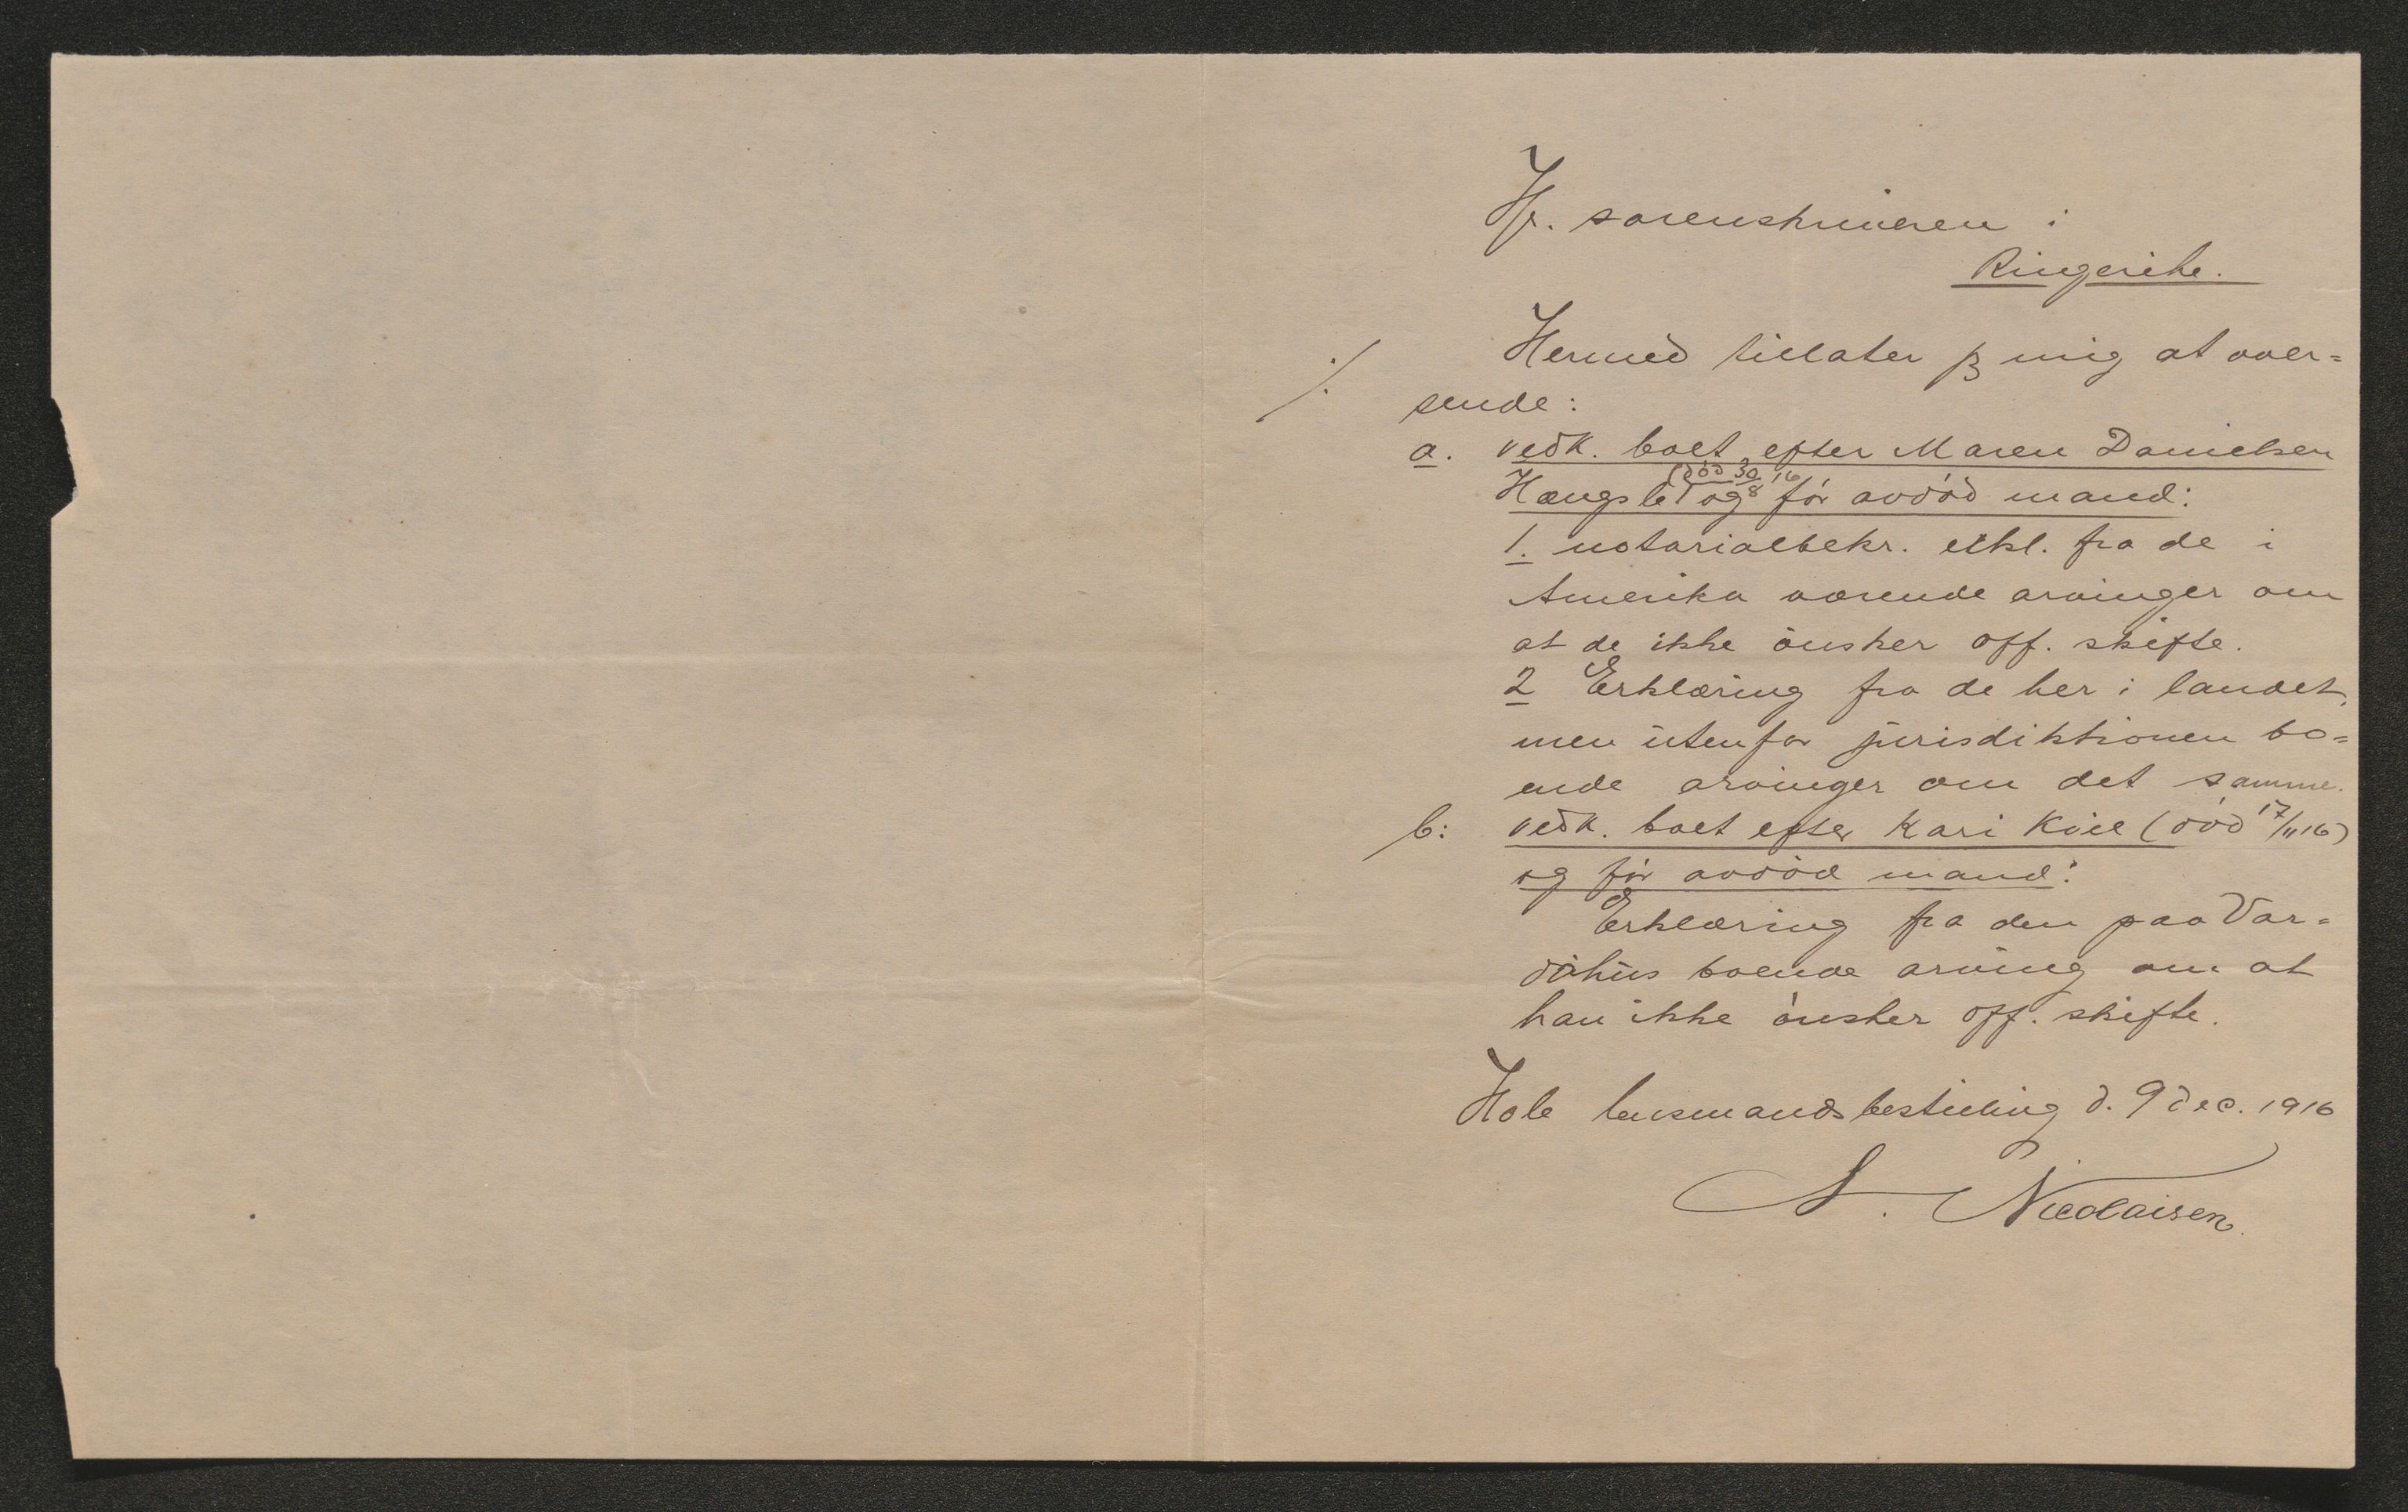 Hr. sorenskriveren i
Ringerike.
Hermed tillater jeg mig at over=
./. sende:
a. vedk. boet efter Maren Danielsen
(död 30/8 16
Hængsle og för avdöd mand:
1. notarialbekr. erkl. fra de i
Amerika værende arvinger om
at de ikke önsker off. skifte.
2 Erklæring fra de her i landet,
men utenfor jurisdiktionen bo=
ende arvinger om det samme.
b: vedk. boet efter Kari (död 17/11 16)
og för avdöd mand:
Erklæring fra den paa Var=
döhus boende arving om at
han ikke önsker off. skifte.
Hole lensmandsbestilling d. 9 dec. 1916
Nicolaisen.